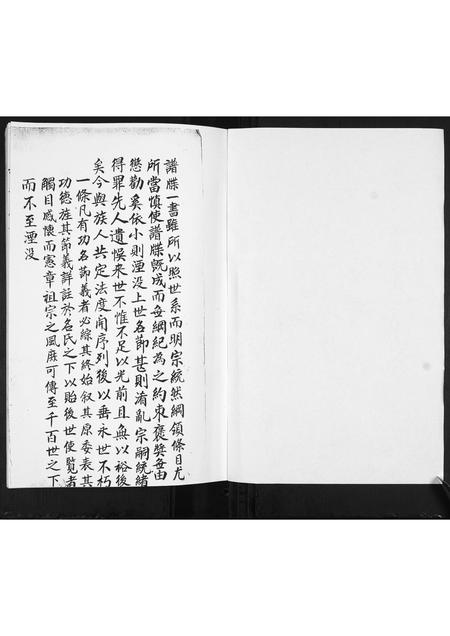 譜牒一書雖所以照世系而明宗統然綱領條目尤
所當慎使譜牒旣成而毎綱紀為之約束褒獎毎由
懲勸奚依小則湮没上世名節甚則淆亂宗嗣統緒
得罪先人遺悞來世不惟不足以光前且無以裕後
矣今與族人共定法度開序列後以垂永世不朽
一條凡有功名節義者必綜其終始叙其原委表其
功德旌其節義詳註於名氏之下以貽後世使覽者
觸目感懷而憲章祖宗之風庶可傳至千百世之下
而不至湮没